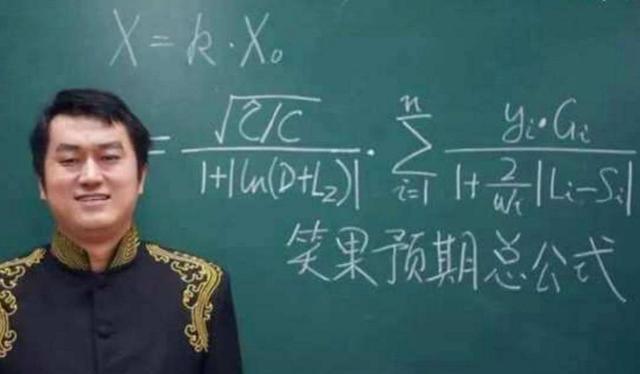 X = k · X₀
= √(Z/C) / (1+|ln(D+L₂)|) · Σ_{i=1}^{n} (yᵢ · Gᵢ) / (1+(2/Wᵢ)|Lᵢ-Sᵢ|)
笑果预期总公式